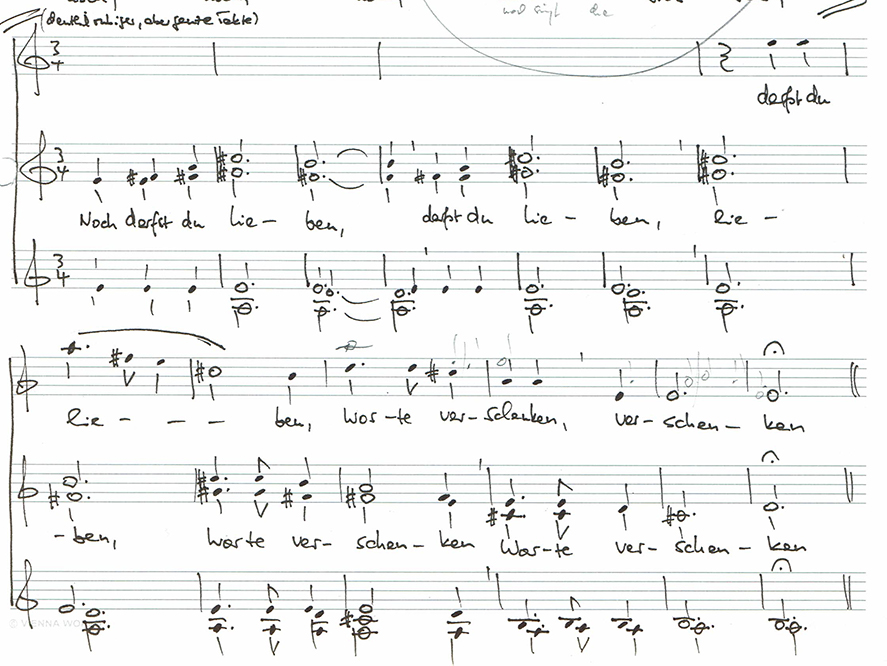 und singt die
(deutlich ruhiger, aber ganze Takte)
3
4
derfst du
3
4
Noch derfst du lie - ben, derfst du lie - ben, lie -
3
4
lie - - - ben, Wor-te ver-schenken, ver-schen-ken
-ben, Worte ver-schen-ken Wor-te ver-schen-ken
© VIENNA WO